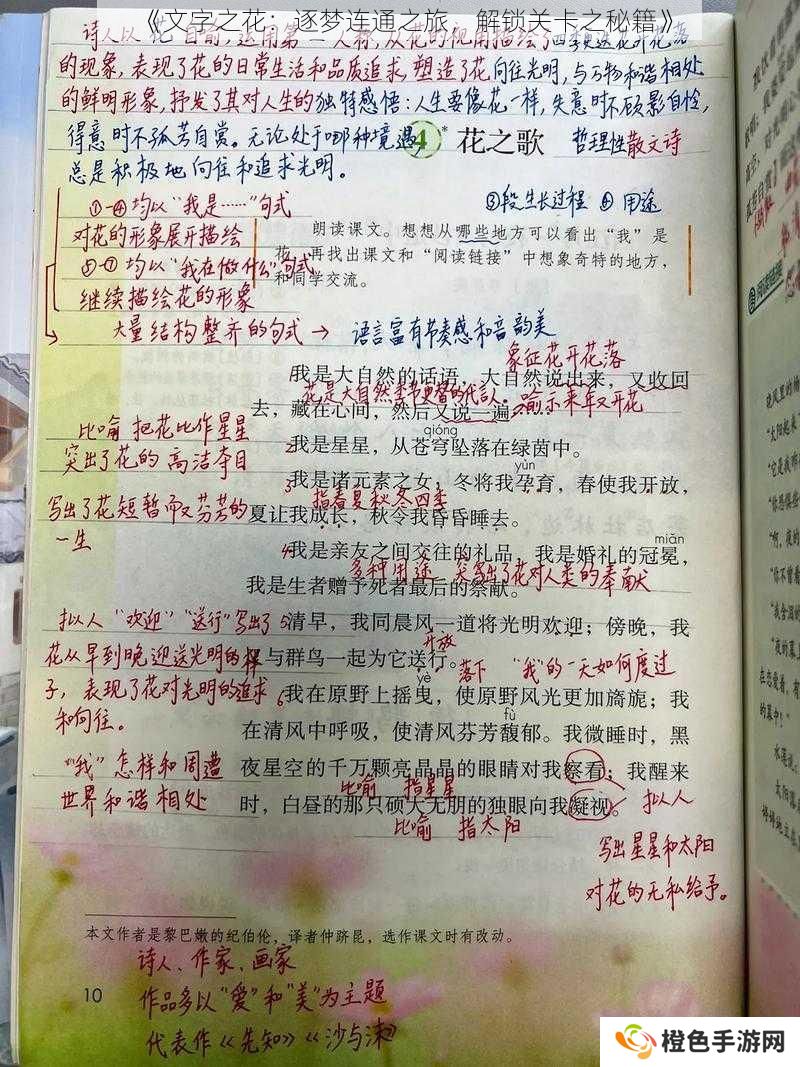 《文字之花：逐梦连通之旅，解锁关卡之秘籍》
诗人以"花"自喻，运用第一人称，从花的视角描绘了四季更迭花开花落
的现象，表现了花的日常生活和品质追求，塑造了花向往光明，与万物和谐相处
的鲜明形象，抒发了其对人生的独特感悟：人生要像花一样，失意时不顾影自怜，
得意时不孤芳自赏。无论处于哪种境遇，
总是积极地向往和追求光明。
4* 花之歌
哲理性散文诗
①-④均以"我是……"句式
对花的形象展开描绘
⑤-⑦均以"我在做什么"句式
继续描绘花的形象
大量结构整齐的句式→ 语言富有节奏感和音韵美
③段生长过程 ④用途
朗读课文。想想从哪些地方可以看出"我"是
花，再找出课文和"阅读链接"中想象奇特的地方，
和同学交流。
象征花开花落
我是大自然的话语，大自然说出来，又收回
花是大自然季节更替的代言人。喻示来年又开花
去，藏在心间，然后又说一遍……
比喻 把花比作星星
突出了花的高洁夺目
qióng
2 我是星星，从苍穹坠落在绿茵中。
yùn
3 我是诸元素之女，冬将我孕育，春使我开放，
指春夏秋冬四季
写出了花短暂而又芬芳的
一生
夏让我成长，秋令我昏昏睡去。
miǎn
4 我是亲友之间交往的礼品，我是婚礼的冠冕，
多种用途 突出了花对人类的奉献
我是生者赠予死者最后的祭献。
拟人 "欢迎""送行"写出了
花从早到晚迎送光明的样
子，表现了花对光明的追求
和向往。
5 清早，我同晨风一道将光明欢迎；傍晚，我
开放
又与群鸟一起为它送行。
落下 "我"的一天如何度过
yè
6 我在原野上摇曳，使原野风光更加旖旎；我
fù
在清风中呼吸，使清风芬芳馥郁。我微睡时，黑
"我"怎样和周遭
世界和谐相处
夜星空的千万颗亮晶晶的眼睛对我察看；我醒来
比喻 指星星
时，白昼的那只硕大无朋的独眼向我凝视。
拟人
比喻 指太阳
写出星星和太阳
对花的无私给予。
本文作者是黎巴嫩的纪伯伦，译者仲跻昆，选作课文时有改动。
诗人、作家、画家
10
作品多以"爱"和"美"为主题
代表作《先知》《沙与沫》
阅读链接
橙色手游网